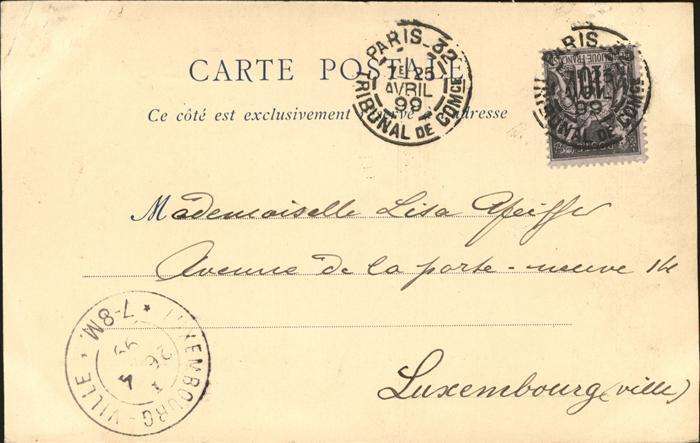 CARTE POSTALE
Ce côté est exclusivement réservé à l'adresse
PARIS-32
7E 25
AVRIL
99
TRIBUNAL DE COMCE
PARIS
99
TRIBUNAL DE COMCE
10
Mademoiselle Lisa Pfeiffer
Avenue de la porte-neuve 14
Luxembourg (ville)
LUXEMBOURG-VILLE * 7-8M. *
26
4
99